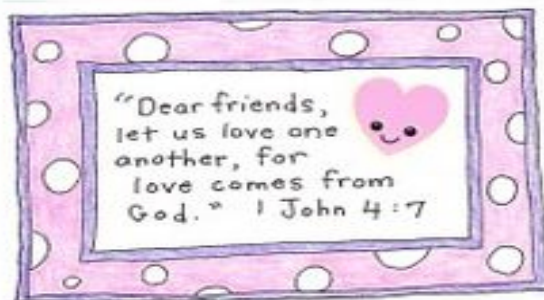 "Dear friends,
let us love one
another, for
love comes from
God." 1 John 4:7